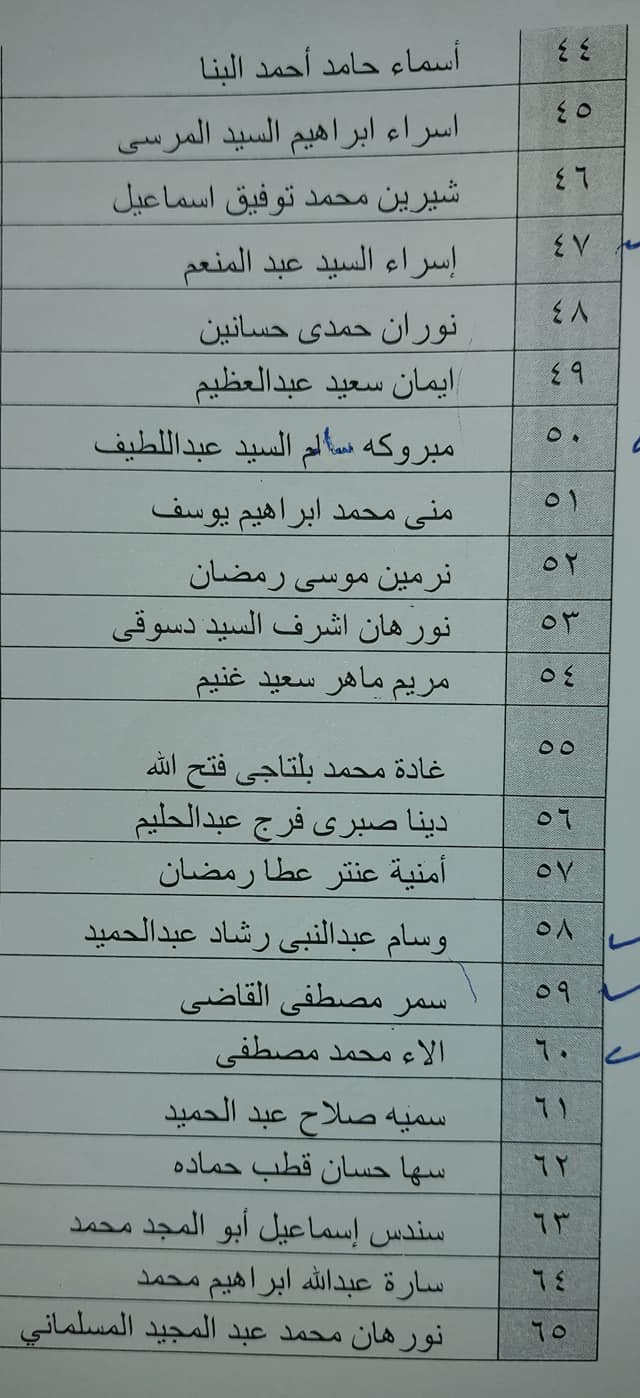 ٤٤ أسماء حامد أحمد البنا
٤٥ اسراء ابراهيم السيد المرسى
٤٦ شيرين محمد توفيق اسماعيل
٤٧ إسراء السيد عبد المنعم
٤٨ نوران حمدى حسانين
٤٩ ايمان سعيد عبدالعظيم
٥٠ مبروكه سالم السيد عبداللطيف
٥١ منى محمد ابراهيم يوسف
٥٢ نرمين موسى رمضان
٥٣ نورهان اشرف السيد دسوقى
٥٤ مريم ماهر سعيد غنيم
٥٥ غادة محمد بلتاجى فتح الله
٥٦ دينا صبرى فرج عبدالحليم
٥٧ أمنية عنتر عطا رمضان
٥٨ وسام عبدالنبى رشاد عبدالحميد
٥٩ سمر مصطفى القاضى
٦٠ الاء محمد مصطفى
٦١ سميه صلاح عبد الحميد
٦٢ سها حسان قطب حماده
٦٣ سندس إسماعيل أبو المجد محمد
٦٤ سارة عبدالله ابراهيم محمد
٦٥ نورهان محمد عبد المجيد المسلماني